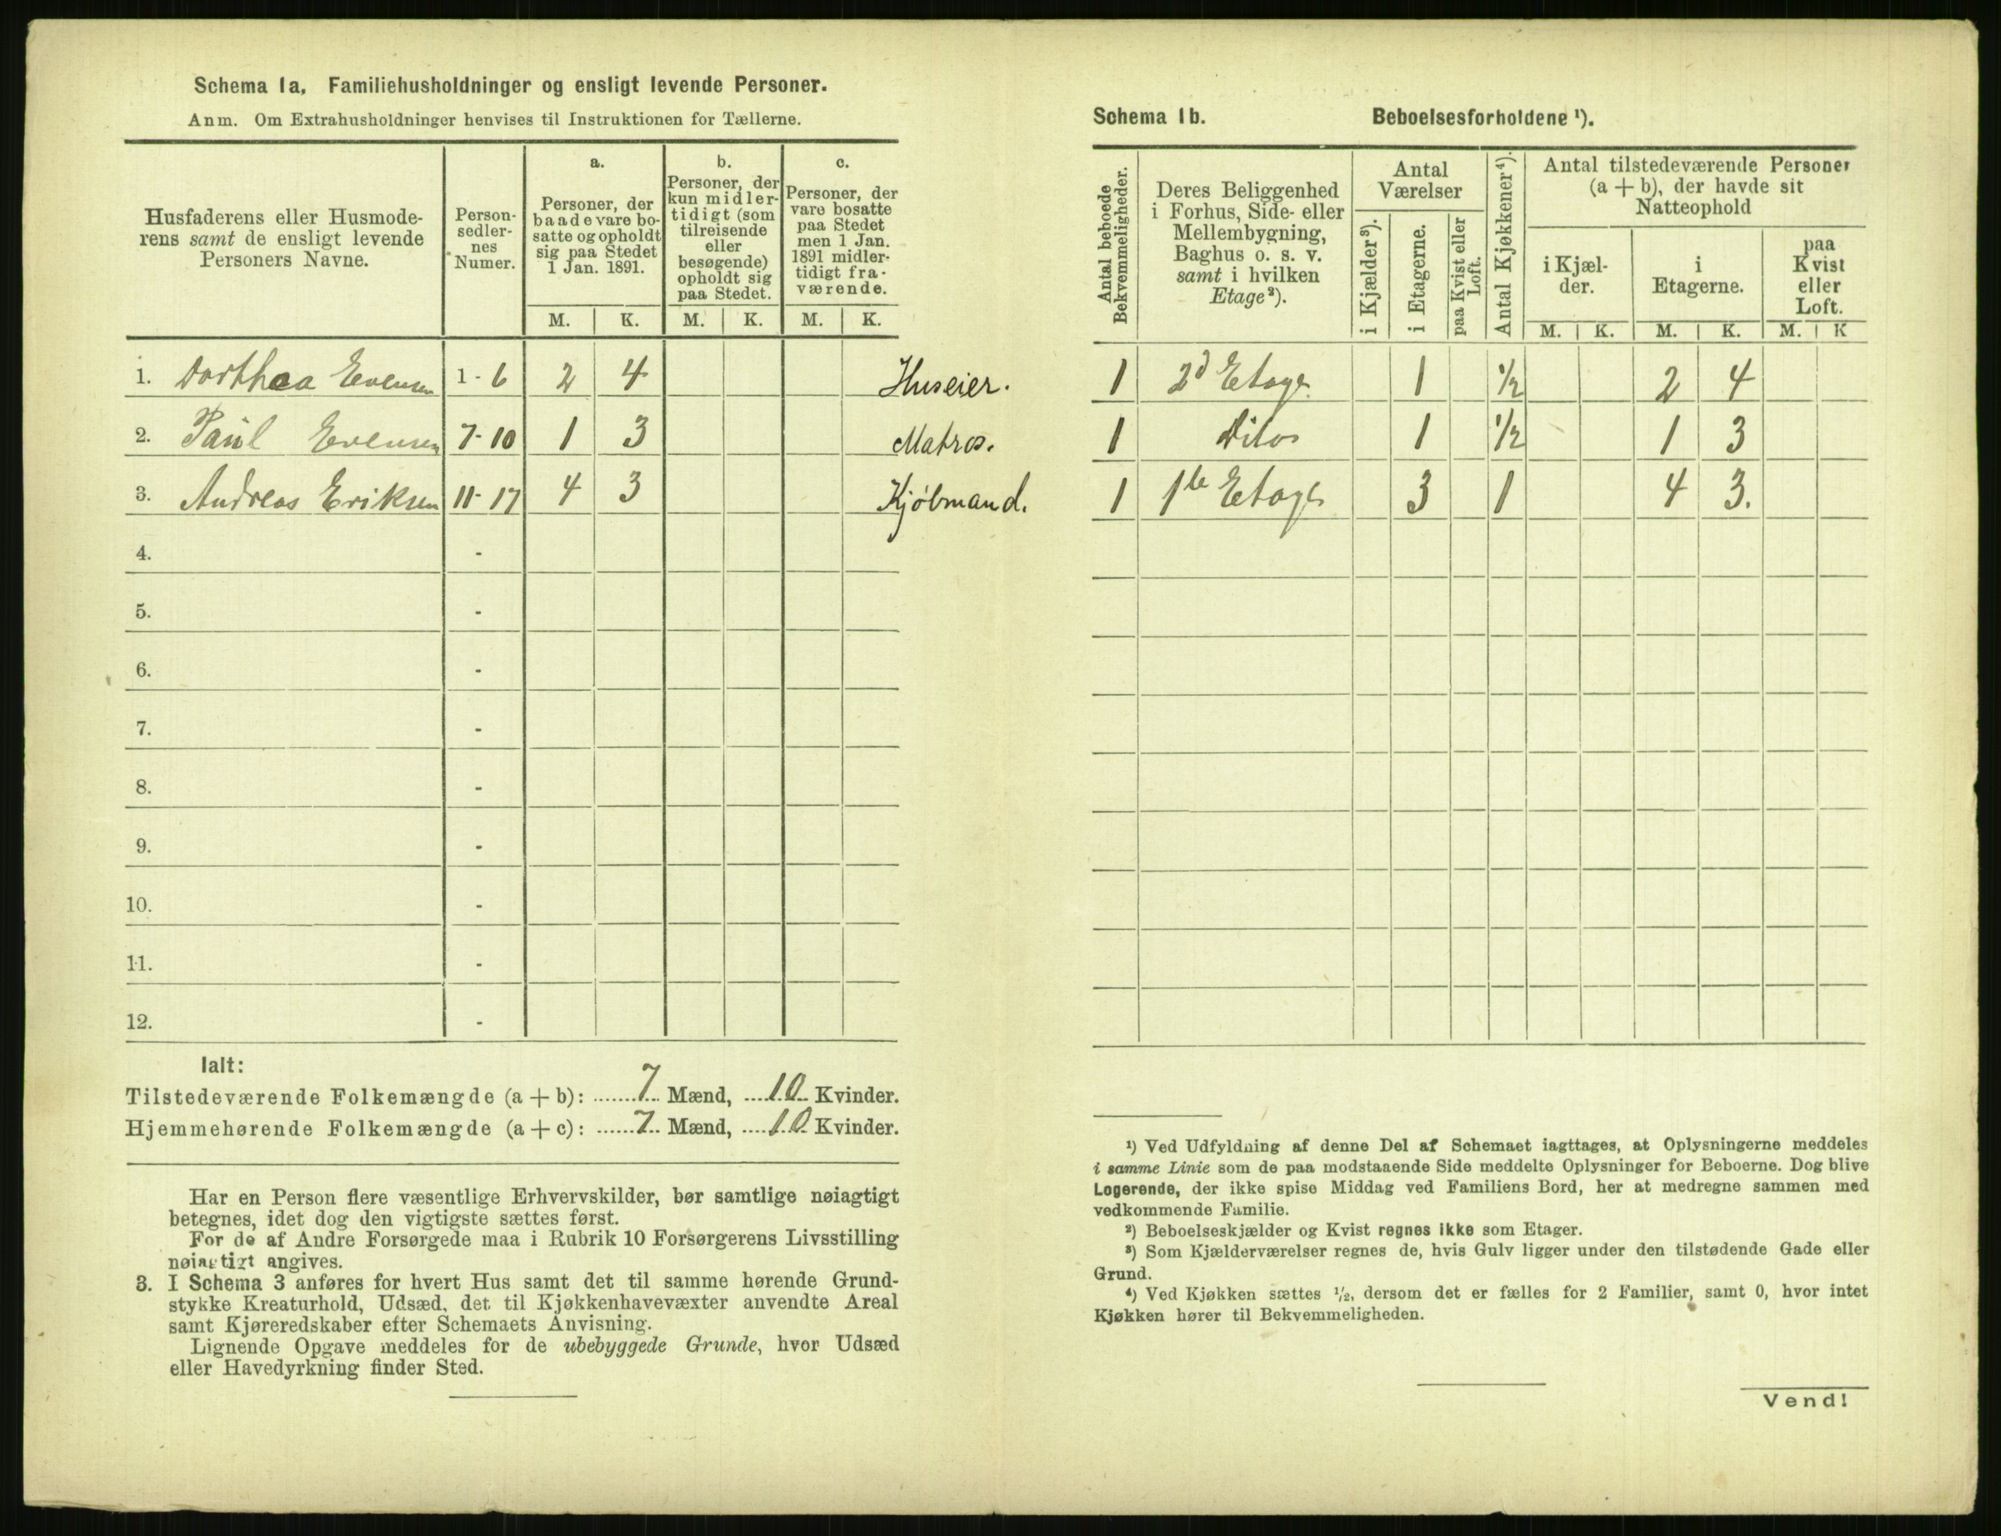 Schema 1a. Familiehusholdninger og ensligt levende Personer.
Anm. Om Extrahusholdninger henvises til Instruktionen for Tællerne.
Husfaderens eller Husmode-
rens samt de ensligt levende
Personers Navne.
Person-
sedler-
nes
Numer.
a.
Personer, der
baade vare bo-
satte og opholdt
sig paa Stedet
1 Jan. 1891.
b.
Personer, der
kun midler-
tidigt (som
tilreisende
eller
besøgende)
opholdt sig
paa Stedet.
c.
Personer, der
vare bosatte
paa Stedet
men 1 Jan.
1891 midler-
tidigt fra-
værende.
M. K. M. K. M. K.
1. Dorthea Evensen 1-6 2 4 Huseier.
2. Paul Evensen 7-10 1 3 Matros.
3. Andreas Eriksen 11-17 4 3 Kjøbmand.
4. -
5. -
6. -
7. -
8. -
9. -
10. -
11. -
12. -
Ialt:
Tilstedeværende Folkemængde (a + b): 7 Mænd, 10 Kvinder.
Hjemmehørende Folkemængde (a + c): 7 Mænd, 10 Kvinder.
Har en Person flere væsentlige Erhvervskilder, bør samtlige nøiagtigt
betegnes, idet dog den vigtigste sættes først.
For de af Andre Forsørgede maa i Rubrik 10 Forsørgerens Livsstilling
nøiagtigt angives.
3. I Schema 3 anføres for hvert Hus samt det til samme hørende Grund-
stykke Kreaturhold, Udsæd, det til Kjøkkenhavevæxter anvendte Areal
samt Kjøreredskaber efter Schemaets Anvisning.
Lignende Opgave meddeles for de ubebyggede Grunde, hvor Udsæd
eller Havedyrkning finder Sted.
Schema 1b. Beboelsesforholdene ¹).
Antal beboede
Bekvemmeligheder.
Deres Beliggenhed
i Forhus, Side- eller
Mellembygning,
Baghus o. s. v.
samt i hvilken
Etage ²).
Antal
Værelser
i Kjælder ³).
i Etagerne.
paa Kvist eller
Loft.
Antal Kjøkkener ⁴).
Antal tilstedeværende Personer
(a + b), der havde sit
Natteophold
i Kjæl-
der.
i
Etagerne.
paa
Kvist
eller
Loft.
M. K. M. K. M. K
1 2d Etage 1 ½ 2 4
1 Dito 1 ½ 1 3
1 1te Etage 3 1 4 3.
¹) Ved Udfyldning af denne Del af Schemaet iagttages, at Oplysningerne meddeles
i samme Linie som de paa modstaaende Side meddelte Oplysninger for Beboerne. Dog blive
Logerende, der ikke spise Middag ved Familiens Bord, her at medregne sammen med
vedkommende Familie.
²) Beboelseskjælder og Kvist regnes ikke som Etager.
³) Som Kjælderværelser regnes de, hvis Gulv ligger under den tilstødende Gade eller
Grund.
⁴) Ved Kjøkken sættes ½, dersom det er fælles for 2 Familier, samt 0, hvor intet
Kjøkken hører til Bekvemmeligheden.
Vend!